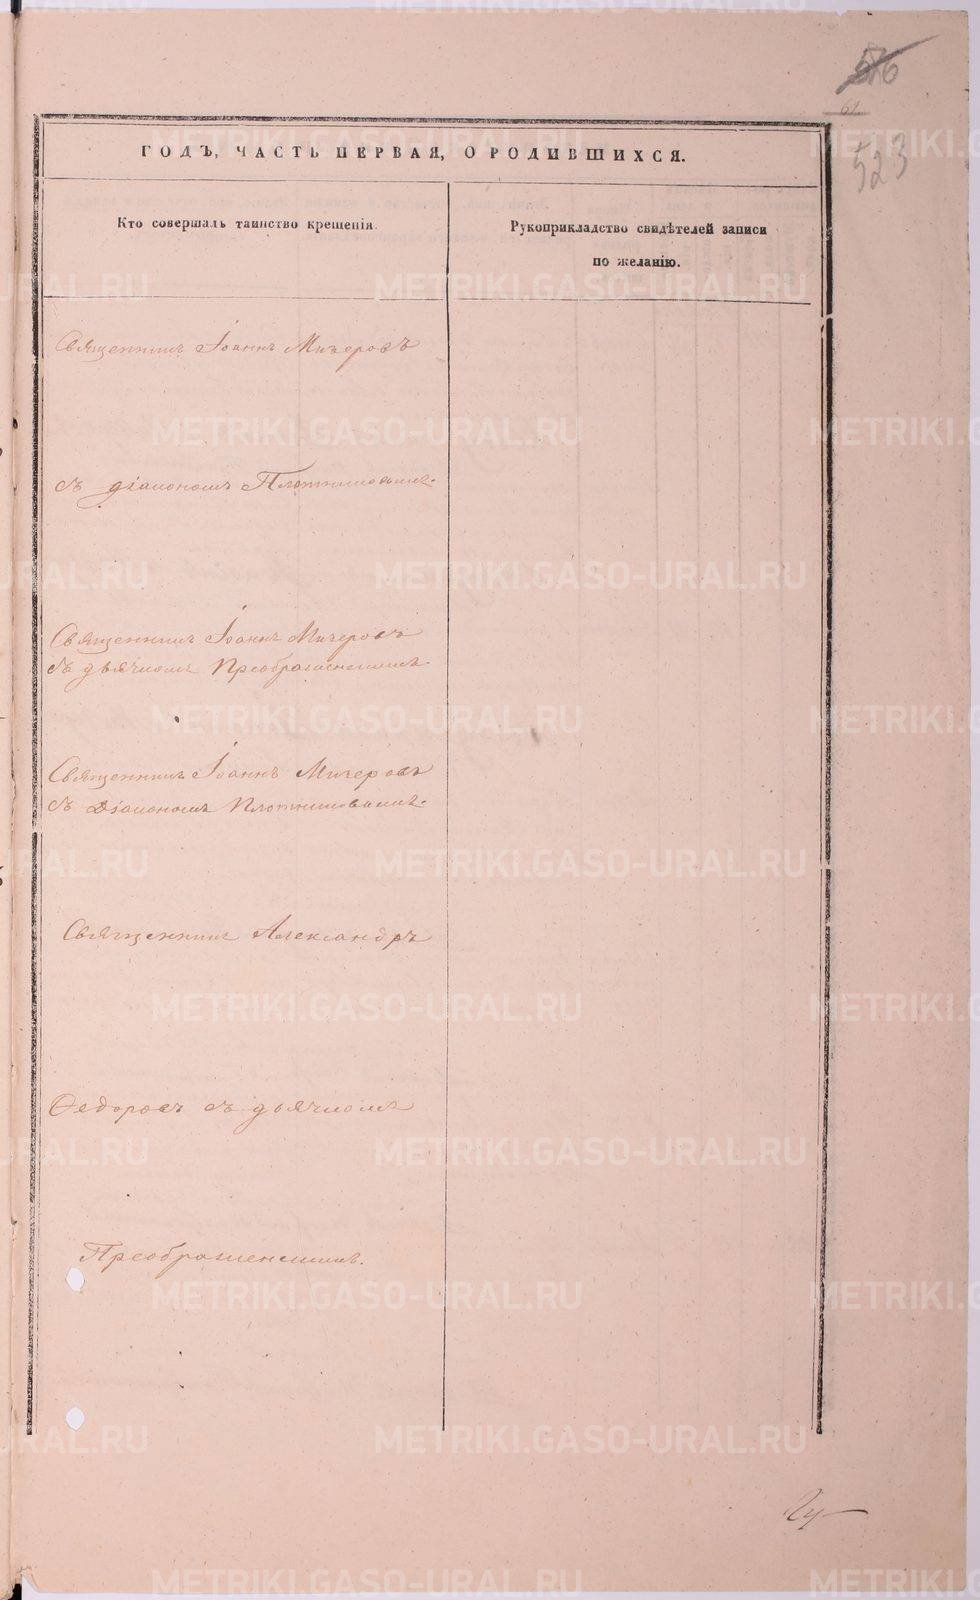 576
61
523
ГОДЪ, ЧАСТЬ ПЕРВАЯ, О РОДИВШИХСЯ.
Кто совершалъ таинство крещенія.
Рукоприкладство свидѣтелей записи
по желанію.
Священникъ Іоаннъ Мичеровъ
съ діакономъ Плотниковымъ.
Священникъ Іоаннъ Мичеровъ
съ дьячкомъ Преображенскимъ.
Священникъ Іоаннъ Мичеровъ
съ Діакономъ Плотниковымъ.
Священникъ Александръ
Ѳедоровъ съ дьячкомъ
Преображенскимъ.
METRIKI.GASO-URAL.RU